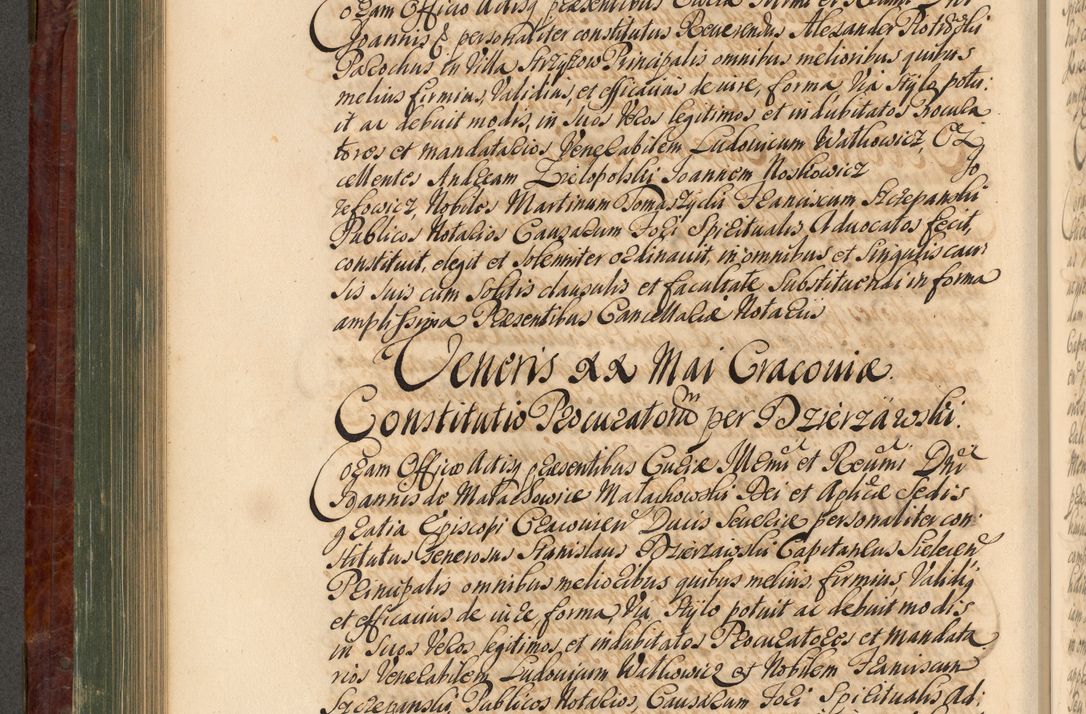 Coram Officio Actisq præsentibus Curiæ
Joannis & personaliter constitutus Reverendus Alexander
Parochus in Villa Strzyżow Principalis omnibus melioribus quibus
melius firmius, Validius, et efficacius de iure, forma, Via Stylo potu:
it ac debuit modis, in suos Veros legitimos et indubitatos Procura
tores et mandatarios Venerabilem Ludovicum Watkowicz, Ex
cellentes Andream Zielopolski Joannem Noskowicz Jo
zefowicz, Nobiles Martinum Tomaszycki Franciscum Szczepanski
Publicos Notarios Causarum Fori Spiritualis Advocatos fecit,
constituit, elegit et solemniter ordinavit, in omnibus et singulis cau
sis suis cum solitis clausulis et facultate substituendi in forma
amplissima Præsentibus Cancellariæ Notariis
Veneris XX Mai Cracoviæ.
Constitutio Procuratorum per Dzierzawski.
Coram Officio Actisq præsentibus Curiæ Illmi et Rdmi Dni
Joannis de Małachowice Małachowski Dei et Aplicæ Sedis
gratia Episcopi Cracovien Ducis Severiæ personaliter con:
stitutus Generosus Stanislaus Dzierzawski Capitaneus
Principalis omnibus melioribus quibus melius, firmius Validiq
et efficacius de iure, forma, Via, Stylo potuit ac debuit modis
in suos Veros legitimos, et indubitatos Procuratores et mandata
rios Venerabilem Ludovicum Watkowicz et Nobilem Franciscum
Szczepanski, Publicos Notarios, Causarum Fori Spiritualis Ad: